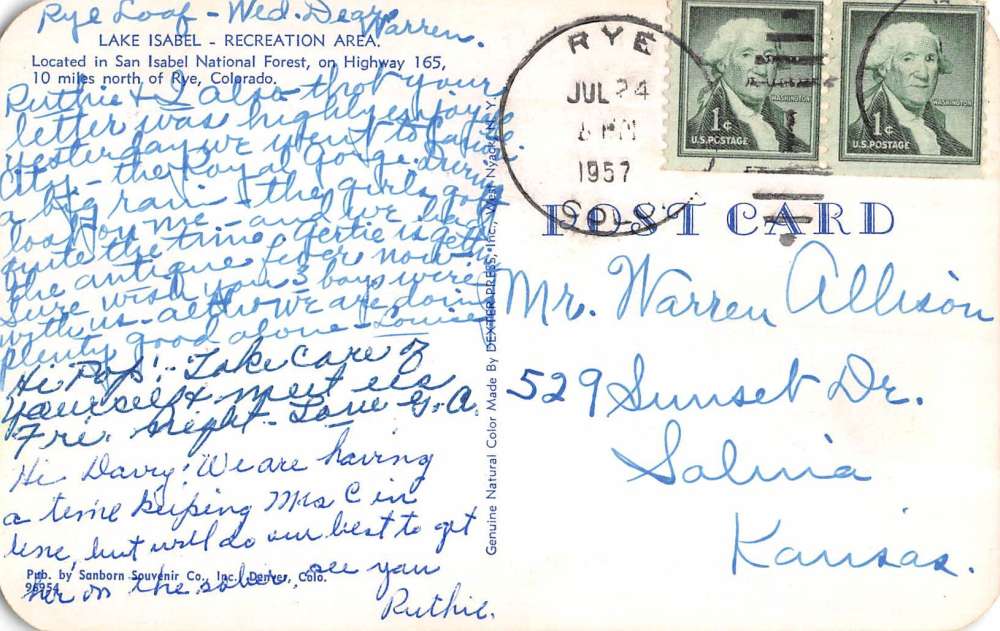 Rye Loaf - Wed. Dear Warren.
LAKE ISABEL - RECREATION AREA.
Located in San Isabel National Forest, on Highway 165,
10 miles north of Rye, Colorado.
Ruthie & I also thot your
letter was highly enjoyable.
Yesterday we went to
City - the Royal Gorge during
a big rain - the girls got
lost on me - and we had
quite the time. Gertie is getting
the antique fever now -
Sure wish you 3 boys were
with us - altho we are doing
plenty good alone - Louise
Hi Pop! - Take care of
yourself & meet us
Fri. night - Love G.A.
Hi Davy! We are having
a time keeping Mrs C in
line, but will do our best to get
her on the sober. See you
Ruthie.
Pub. by Sanborn Souvenir Co., Inc., Denver, Colo.
96954
Genuine Natural Color Made By DEXTER PRESS, Inc., West Nyack, N.Y.
RYE
JUL 24
PM
1957
COLO.
WASHINGTON
1¢
U.S. POSTAGE
WASHINGTON
1¢
U.S. POSTAGE
POST CARD
Mr. Warren Allison
529 Sunset Dr.
Salina
Kansas.